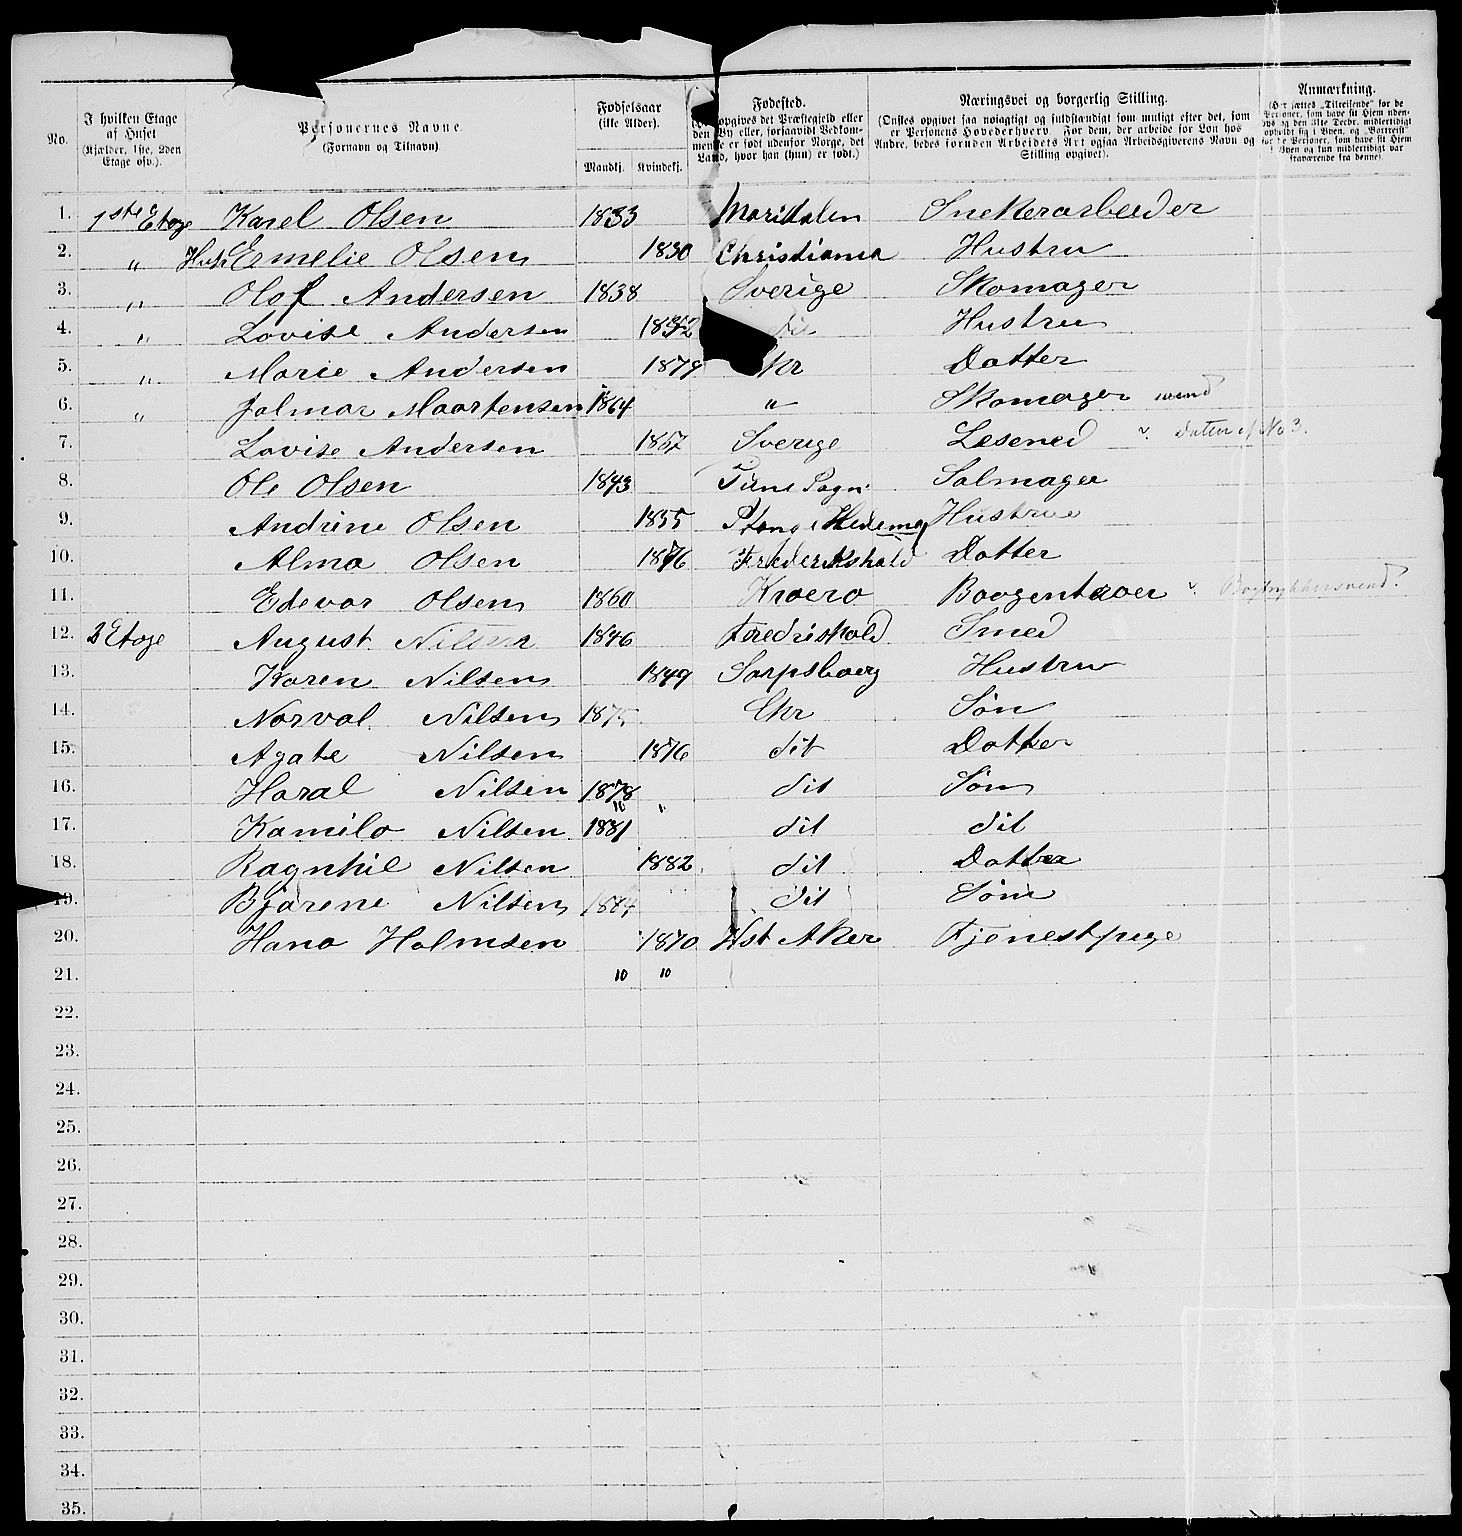 No. | I hvilken Etage af Huset (Kjælder, 1ste, 2den Etage osv.). | Personernes Navne (Fornavn og Tilnavn) | Fødselsaar (ikke Alder). Mandkj. | Kvindekj. | Fødested. opgives det Præstegjeld eller den By eller, forsaavidt Vedkommende er født udenfor Norge, det Land, hvor han (hun) er født.) | Næringsvei og borgerlig Stilling. (Ønskes opgivet saa nøiagtigt og fuldstændigt som muligt efter det, som er Personens Hovederhverv. For dem, der arbeide for Løn hos Andre, bedes foruden Arbeidets Art ogsaa Arbeidsgiverens Navn og Stilling opgivet). | Anmærkning. (Her sættes „Tilreisende“ for de Personer, som have sit Hjem udenbys og den 31te Decbr. midlertidigt opholdt sig i Byen, og „Bortreist“ for de Personer, som have sit Hjem i Byen og kun midlertidigt var fraværende fra denne).
1. 1ste Etage Karel Olsen 1833 Maridalen Snekerarbeider
2. " Hus Ermelie Olsen 1830 Christiania Hustru
3. " Olof Andersen 1838 Sverige Skomager
4. " Lovise Andersen 1832 dit Hustru
5. " Marie Andersen 1879 Chr Datter
6. " Jalmar Maartensen 1864 " Skomager svend
7. Lovise Andersen 1867 Sverige Datter af No 3.
8. Ole Olsen 1843 Tune Sogn Salmager
9. Andrine Olsen 1855 Stange Hedema Hustrue
10. Alma Olsen 1876 Frederikshald Datter
11. Edevar Olsen 1860 Kraerø Boogentrøer Bogtrykkersvend?
12. 2 Etage August Nilsen 1846 Fredriskald Smed
13. Karen Nilsen 1849 Sarpsboerg Hustru
14. Norval Nilsen 1875 Chr Søn
15. Agate Nilsen 1876 dit Datter
16. Haral Nilsen 1878 dit Søn
10 "
17. Kamilo Nilsen 1881 dit dit
18. Ragnhil Nilsen 1882 dit Datter
19. Bjarene Nilsen 1884 dit Søn
20. Hana Holmsen 1870 Vst Aker Tjenestpige
21. 10 10
22.
23.
24.
25.
26.
27.
28.
29.
30.
31.
32.
33.
34.
35.